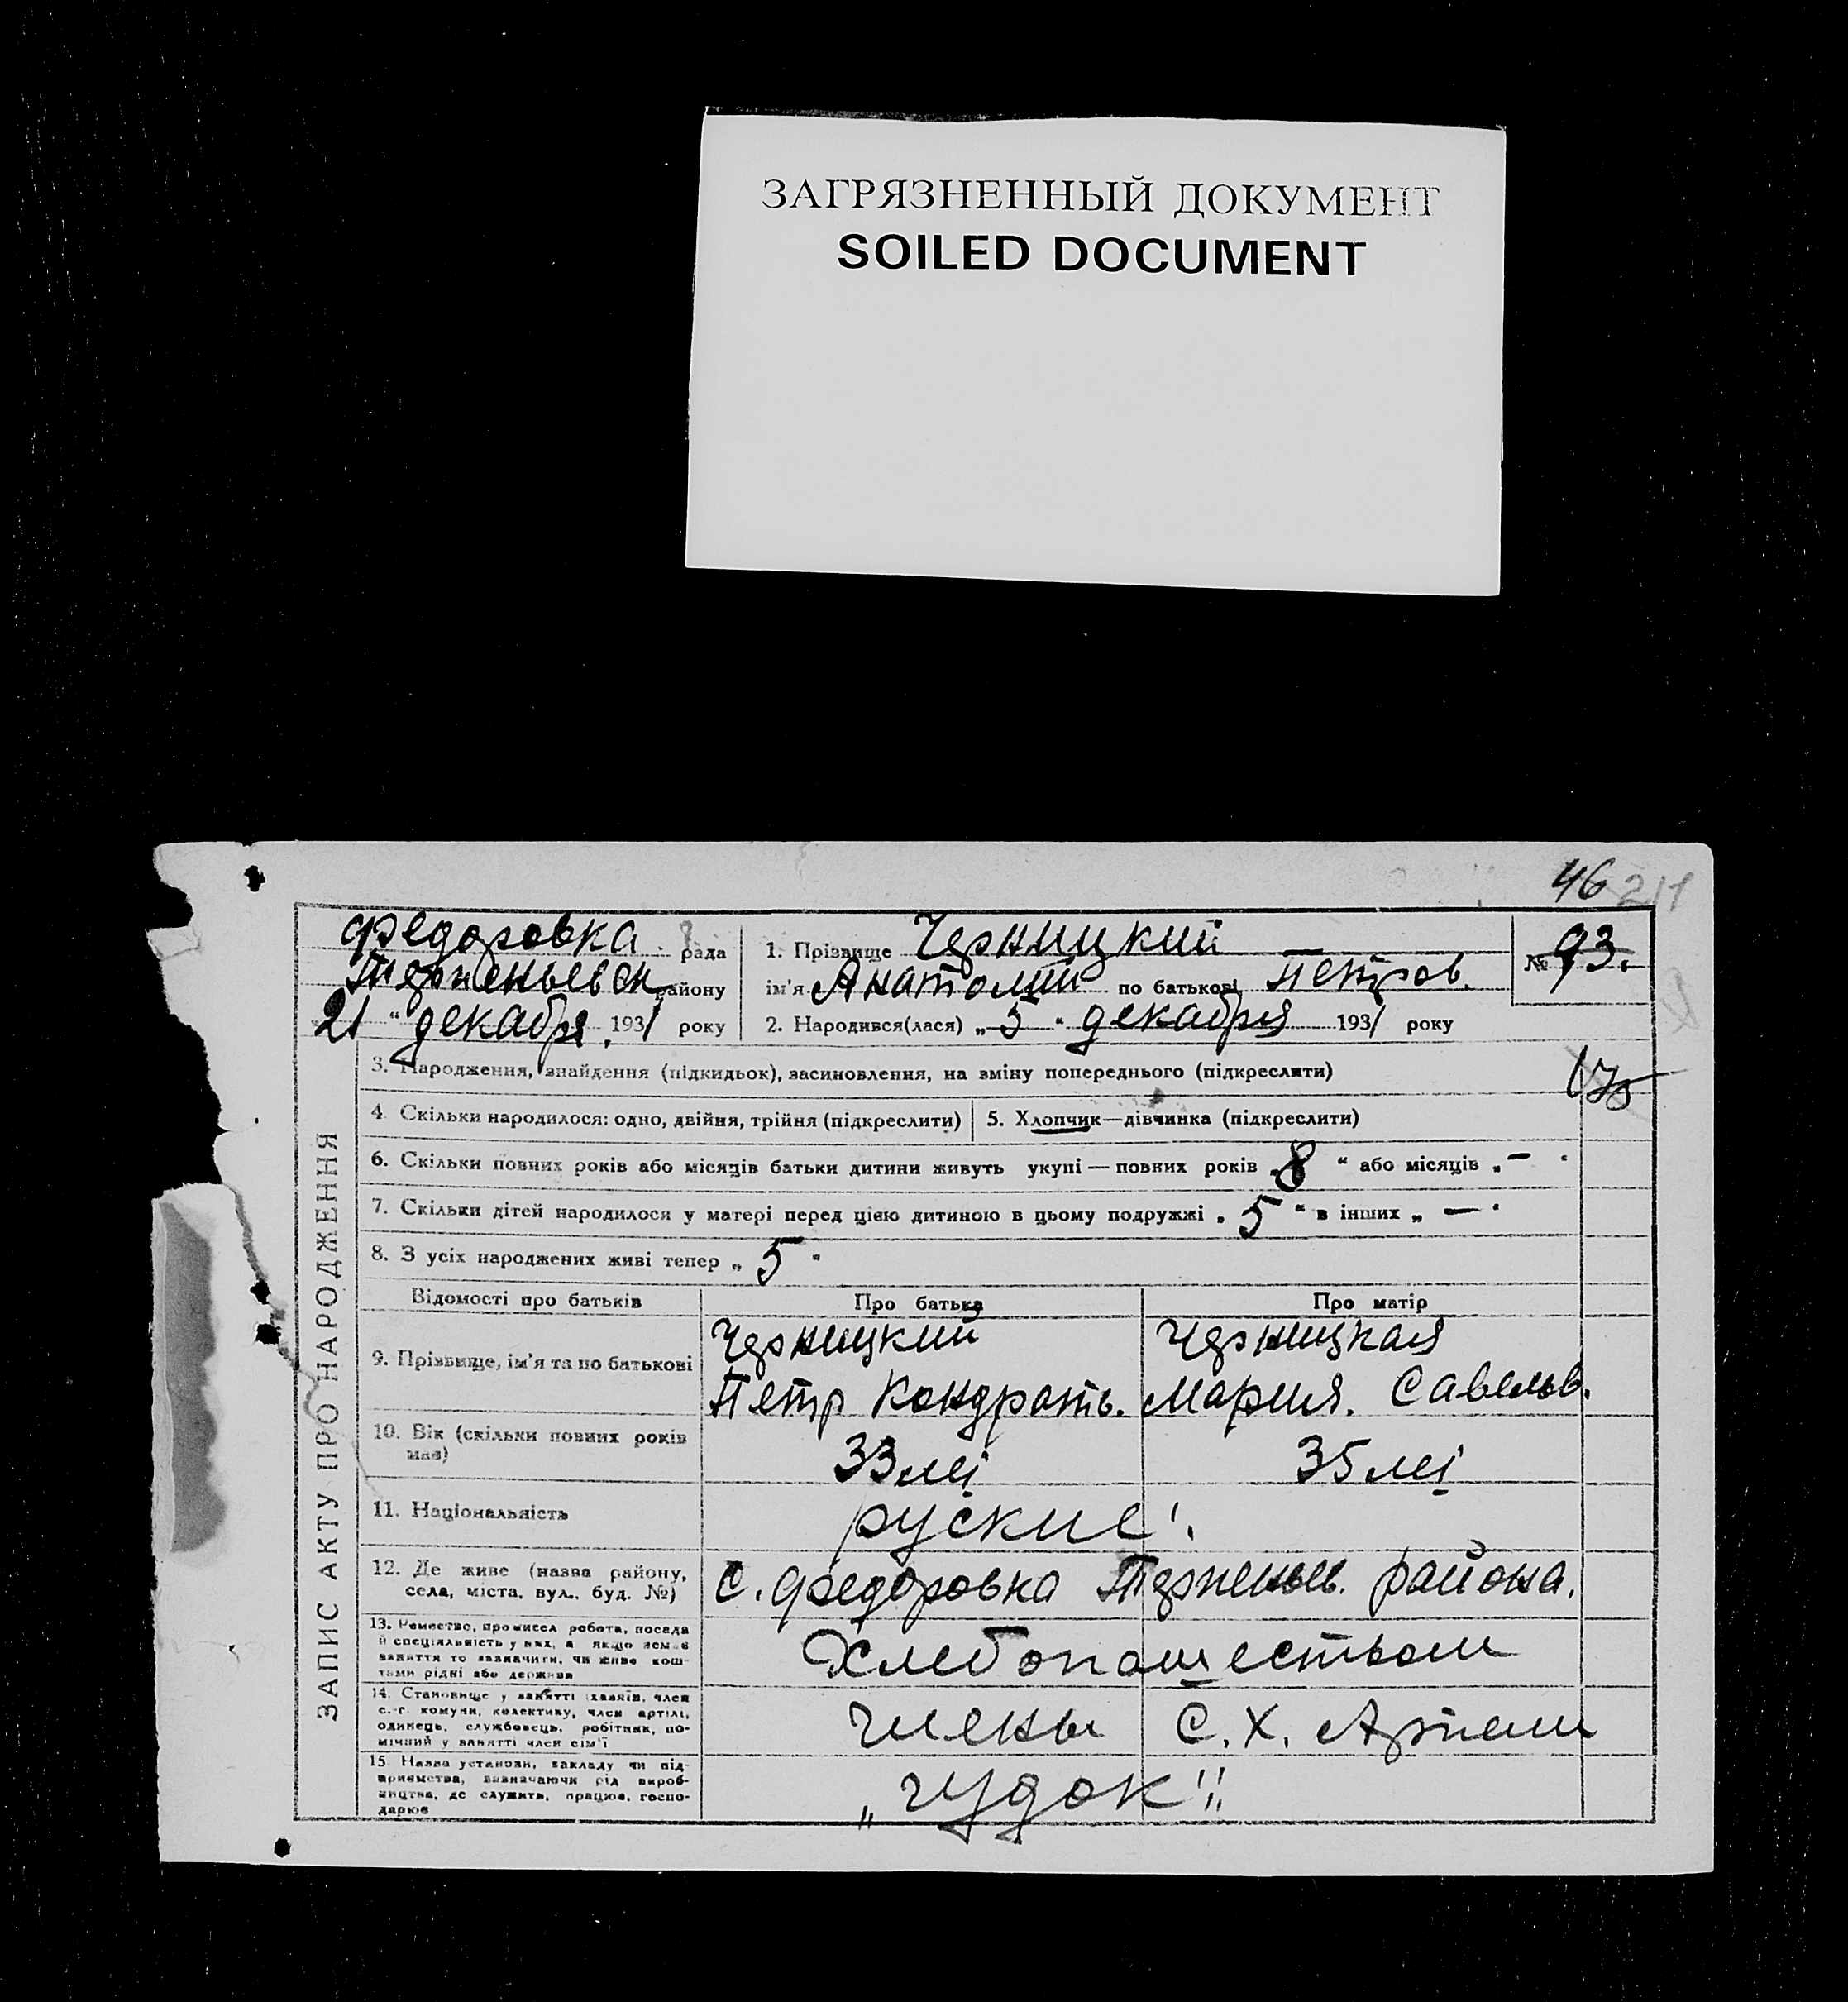 ЗАГРЯЗНЕННЫЙ ДОКУМЕНТ
SOILED DOCUMENT
46 211
Федоровка рада
Терпеньевск району
21 " декабря. 1931 року
1. Прізвище Черницкий
ім'я Анатолий по батькові Петров.
2. Народився(лася) „ 5 " декабря 1931 року
№ 93.
3. Народження, знайдення (підкидьок), засиновлення, на зміну попереднього (підкреслити)
175
4. Скільки народилося: одно, двійня, трійня (підкреслити)
5. Хлопчик—дівчинка (підкреслити)
6. Скільки повних років або місяців батьки дитини живуть укупі — повних років „ 8 " або місяців „ — "
7. Скільки дітей народилося у матері перед цією дитиною в цьому подружжі „ 5 " в інших „ — "
8. З усіх народжених живі тепер „ 5 "
ЗАПИС АКТУ ПРО НАРОДЖЕННЯ
Відомості про батьків
Про батька
Про матір
9. Прізвище, ім'я та по батькові
Черницкий
Петр Кондрать.
Черницкая
Мария. Савельв.
10. Вік (скільки повних років
має)
33 лет
35 лет
11. Національність
руские.
12. Де живе (назва району,
села, міста, вул., буд. №)
с. Федоровка Терпеньев. района.
13. Ремество, промисел робота, посада
й спеціяльність у них, а якщо нема
заняття то зазначити, чи живе кош-
тами рідні або держави
Хлебопашеством
14. Становище у занятті (хазяїн, член
с.-г. комуни, колективу, член артілі,
одинець, службовець, робітник, по-
мічний у занятті член сім'ї
члены С. Х. Артели
15. Назва установи, закладу чи під-
приємства, зазначаючи рід вироб-
ництва, де служить, працює, госпо-
дарює
„Чудок"